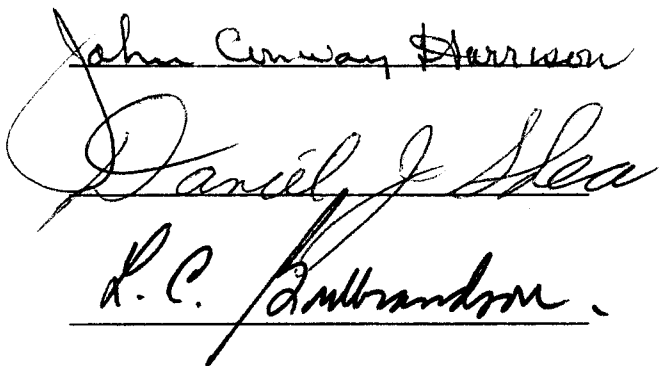 John Conway Harrison
Daniel J Shea
L. C. Gulbrandson.